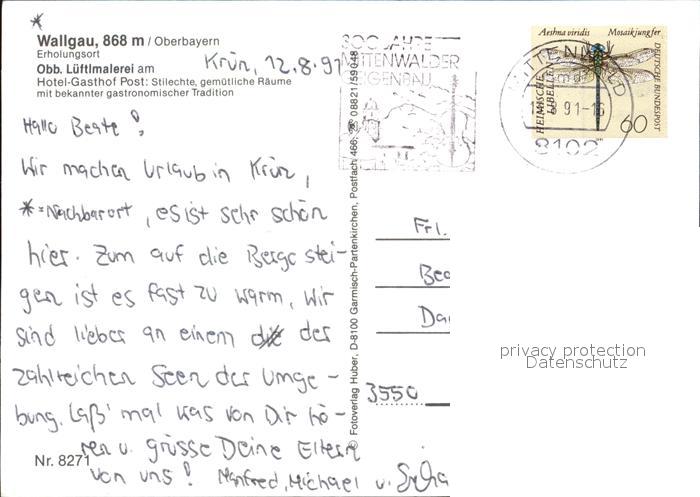 *
Wallgau, 868 m / Oberbayern
Erholungsort
Obb. Lüftlmalerei am
Hotel-Gasthof Post: Stilechte, gemütliche Räume
mit bekannter gastronomischer Tradition
Krün, 12.8.91
Hallo Beate!
Wir machen Urlaub in Krün,
*=Nachbarort, es ist sehr schön
hier. Zum auf die Berge stei-
gen ist es fast zu warm, wir
sind lieber an einem der
zahlreichen Seen der Umge-
bung. Laß' mal was von Dir hö-
ren u. grüsse Deine Eltern
von uns! Manfred, Michael u.
Nr. 8271
© Fotoverlag Huber, D-8100 Garmisch-Partenkirchen, Postfach 466, ☎ 08821/59048
300 JAHRE
MITTENWALDER
GEIGENBAU
MITTENWALD
91-16
8102
Aeshna viridis Mosaikjungfer
HEIMISCHE
LIBELLEN
DEUTSCHE BUNDESPOST
60
Frl.
Bea
Da
3550
privacy protection
Datenschutz